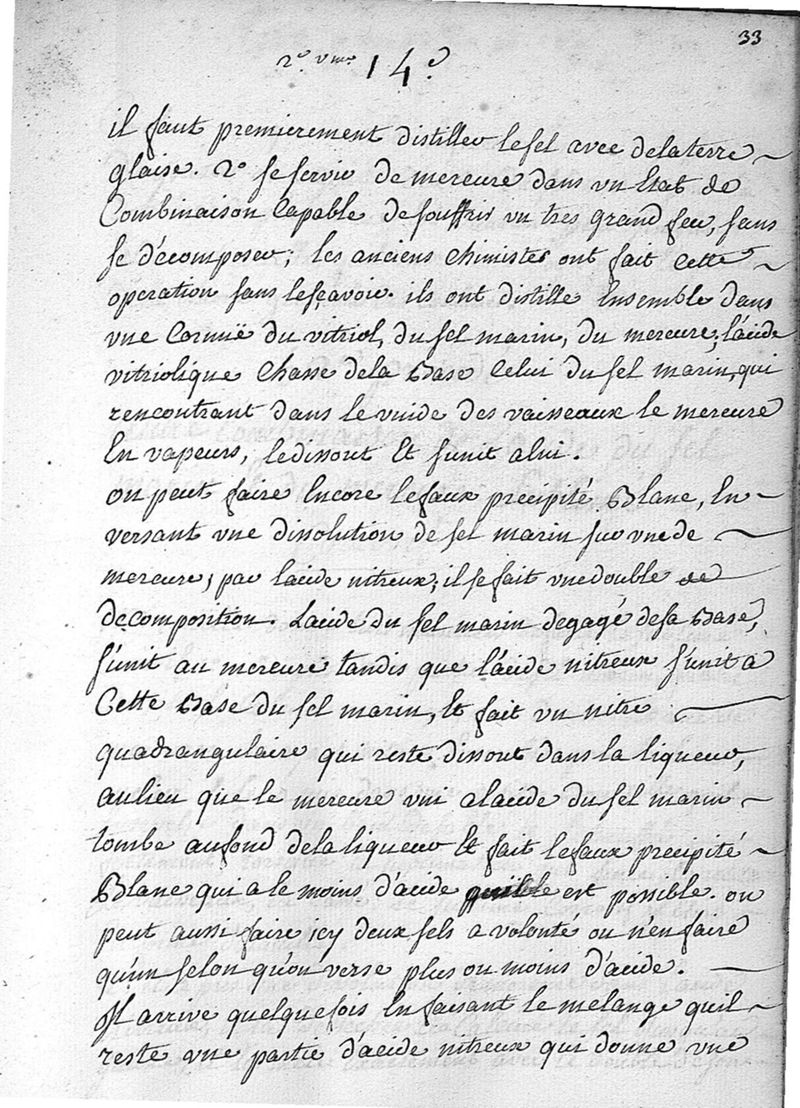 33
2e vme 14e
il faut premierement distiller le sel avec de la terre
glaise. 2o se servir de mercure dans un Etat de
Combinaison Capable de souffrir un tres grand feu, sans
se décomposer; les anciens chimistes ont fait cette
operation sans le sçavoir. ils ont distillé Ensemble dans
une Cornuë du vitriol, du sel marin, du mercure; l'acide
vitriolique chasse de la Base Celui du sel marin, qui
rencontrant dans le vuide des vaisseaux le mercure
En vapeurs, le dissout Et s'unit a lui.
on peut faire Encore le faux precipité Blanc, En
versant une dissolution de sel marin sur une de
mercure, par l'acide nitreux; il se fait une double
decomposition. L'acide du sel marin degagé de sa Base,
s'unit au mercure tandis que l'acide nitreux s'unit a
Cette Base du sel marin, Et fait un nitre
quadrangulaire qui reste dissout dans la liqueur,
au lieu que le mercure uni a l'acide du sel marin
tombe au fond de la liqueur Et fait le faux precipité
Blanc qui a le moins d'acide quil est possible. on
peut aussi faire icy deux sels a volonté ou n'en faire
qu'un selon qu'on verse plus ou moins d'acide.
Il arrive quelquefois En faisant le melange quil
reste une partie d'acide nitreux qui donne une